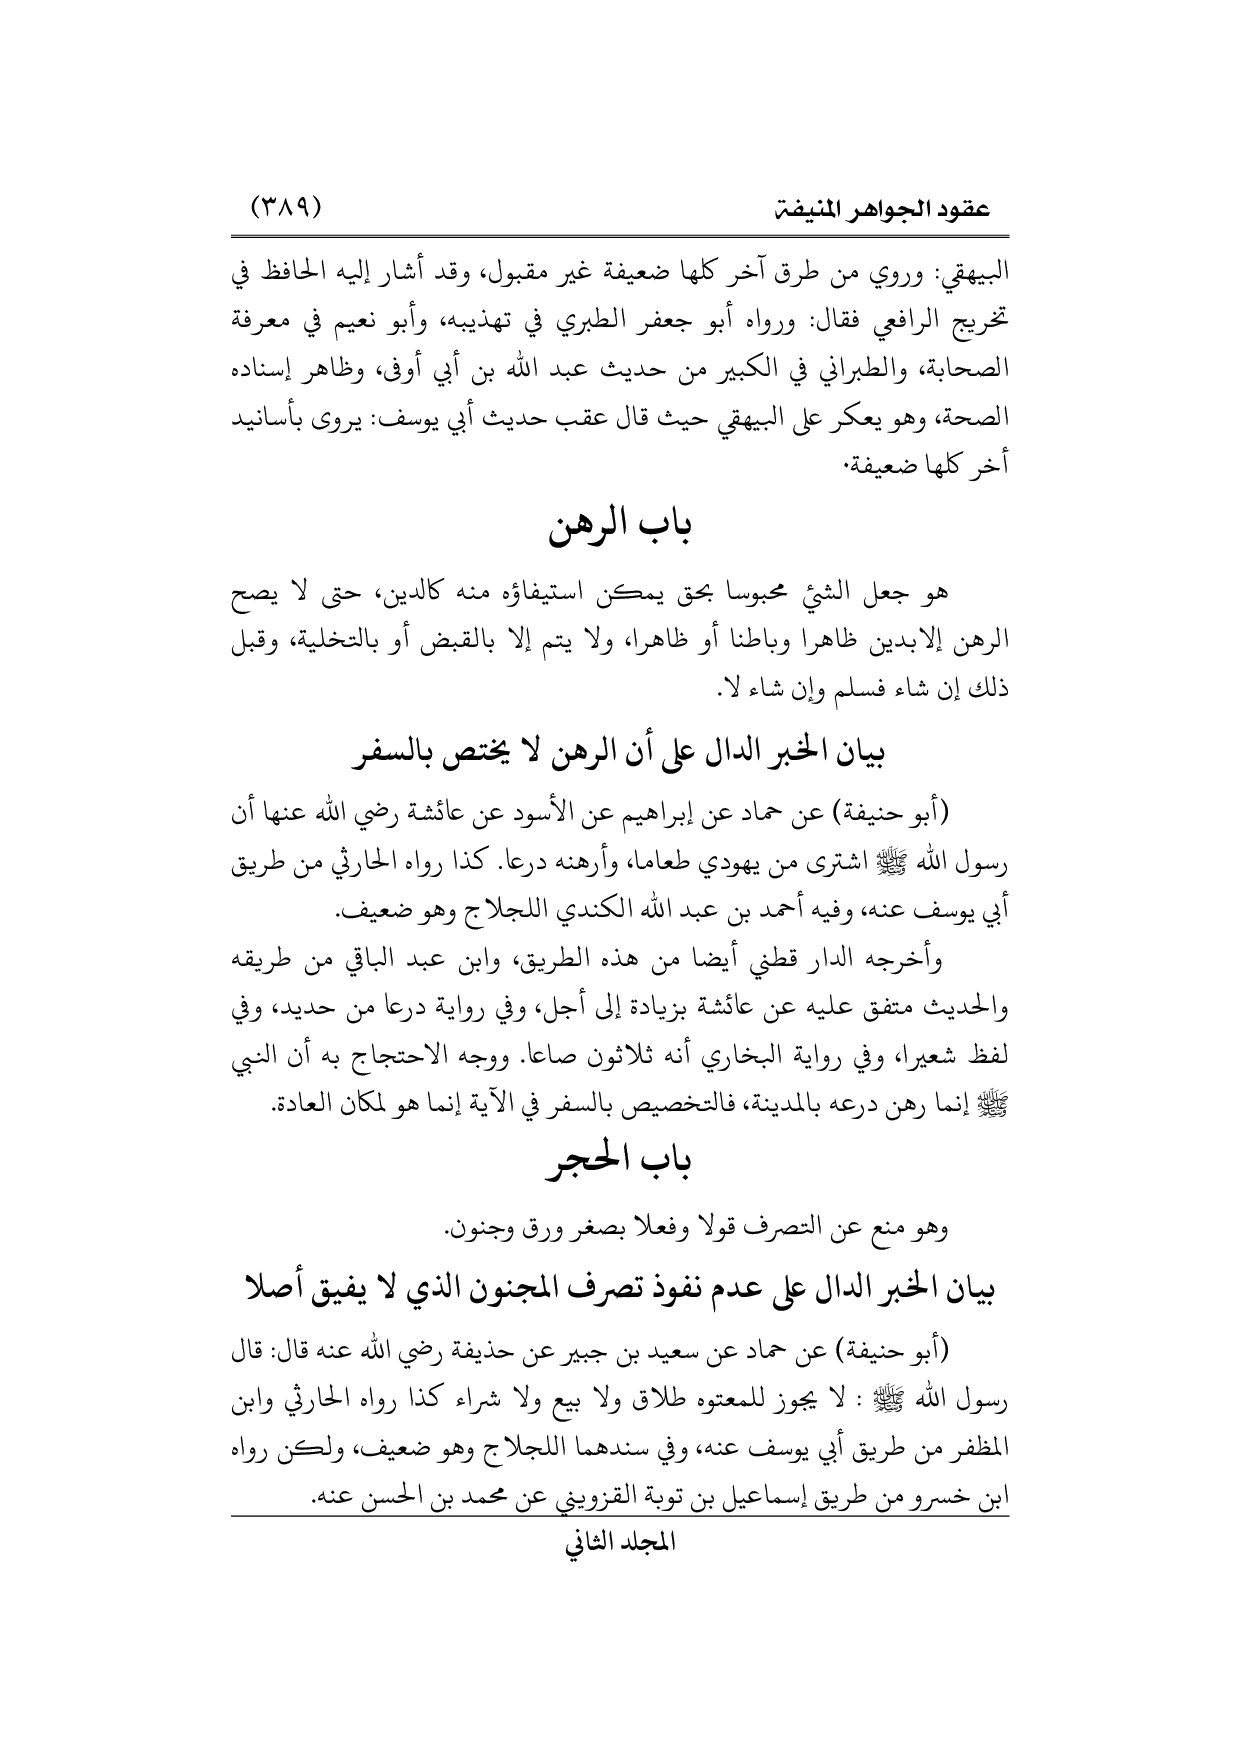 عقود الجواهر المنيفة (٣٨٩)
البيهقي: وروي من طرق آخر كلها ضعيفة غير مقبول، وقد أشار إليه الحافظ في
تخريج الرافعي فقال: ورواه أبو جعفر الطبري في تهذيبه، وأبو نعيم في معرفة
الصحابة، والطبراني في الكبير من حديث عبد الله بن أبي أوفى، وظاهر إسناده
الصحة، وهو يعكر على البيهقي حيث قال عقب حديث أبي يوسف: يروى بأسانيد
أخر كلها ضعيفة.
باب الرهن
هو جعل الشئ محبوسا بحق يمكن استيفاؤه منه كالدين، حتى لا يصح
الرهن إلابدين ظاهرا وباطنا أو ظاهرا، ولا يتم إلا بالقبض أو بالتخلية، وقبل
ذلك إن شاء فسلم وإن شاء لا.
بيان الخبر الدال على أن الرهن لا يختص بالسفر
(أبو حنيفة) عن حماد عن إبراهيم عن الأسود عن عائشة رضي الله عنها أن
رسول الله ﷺ اشترى من يهودي طعاما، وأرهنه درعا. كذا رواه الحارثي من طريق
أبي يوسف عنه، وفيه أحمد بن عبد الله الكندي اللجلاج وهو ضعيف.
وأخرجه الدار قطني أيضا من هذه الطريق، وابن عبد الباقي من طريقه
والحديث متفق عليه عن عائشة بزيادة إلى أجل، وفي رواية درعا من حديد، وفي
لفظ شعيرا، وفي رواية البخاري أنه ثلاثون صاعا. ووجه الاحتجاج به أن النبي
ﷺ إنما رهن درعه بالمدينة، فالتخصيص بالسفر في الآية إنما هو لمكان العادة.
باب الحجر
وهو منع عن التصرف قولا وفعلا بصغر ورق وجنون.
بيان الخبر الدال على عدم نفوذ تصرف المجنون الذي لا يفيق أصلا
(أبو حنيفة) عن حماد عن سعيد بن جبير عن حذيفة رضي الله عنه قال: قال
رسول الله ﷺ : لا يجوز للمعتوه طلاق ولا بيع ولا شراء كذا رواه الحارثي وابن
المظفر من طريق أبي يوسف عنه، وفي سندهما اللجلاج وهو ضعيف، ولكن رواه
ابن خسرو من طريق إسماعيل بن توبة القزويني عن محمد بن الحسن عنه.
المجلد الثاني